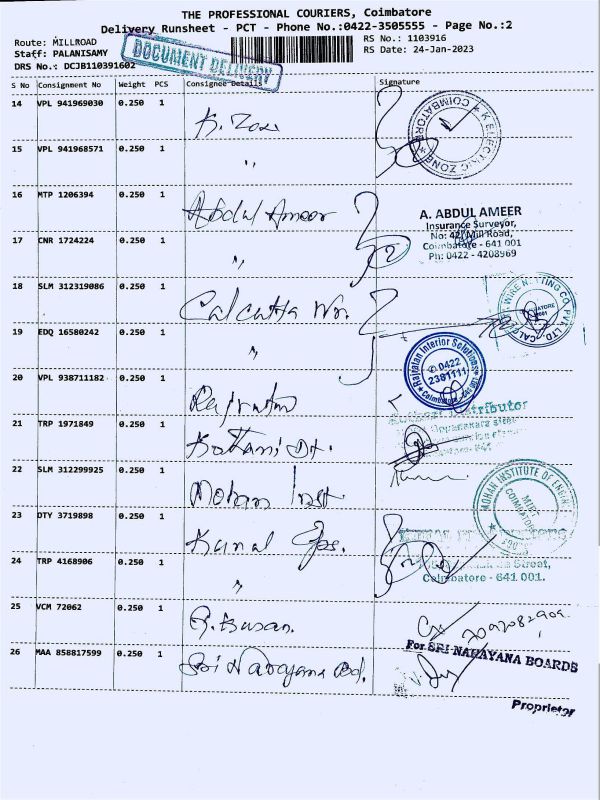 THE PROFESSIONAL COURIERS, Coimbatore
Delivery Runsheet - PCT - Phone No.:0422-3505555 - Page No.:2
Route: MILLROAD
Staff: PALANISAMY
DRS No.: DCJB110391602
DOCUMENT DELIVERY
RS No.: 1103916
RS Date: 24-Jan-2023
S No Consignment No Weight PCS Consignee Details Signature
14 VPL 941969030 0.250 1
K. Zone
K ELECTRIC ZONE * COIMBATORE *
15 VPL 941968571 1 0.250
"
16 MTP 1206394 0.250 1 Abdul Ameer
A. ABDUL AMEER
Insurance Surveyor,
No: 42, Mill Road,
Coimbatore - 641 001
Ph: 0422 - 4208969
17 CNR 1724224 0.250 1 "
18 SLM 312319086 0.250 1 Calcutta Wn.
WIRE NETTING CO. PVT. LTD.
19 EDQ 16580242 0.250 1 "
Rajratan Interior Solutions
0422
2381111
20 VPL 938711182 0.250 1 Rajratan
Distributor
21 TRP 1971849 0.250 1 Kothari Dt.
22 SLM 312299925 0.250 1 Mohan Inst
MOHAN INSTITUTE OF
COIMBATORE
23 DTY 3719898 0.250 1 Kunal Ops.
24 TRP 4168906 0.250 1 "
Street,
Coimbatore - 641 001.
25 VCM 72062 0.250 1
26 MAA 858817599 0.250 1 Sri Narayana Bd.
For SRI NARAYANA BOARDS
Proprietor